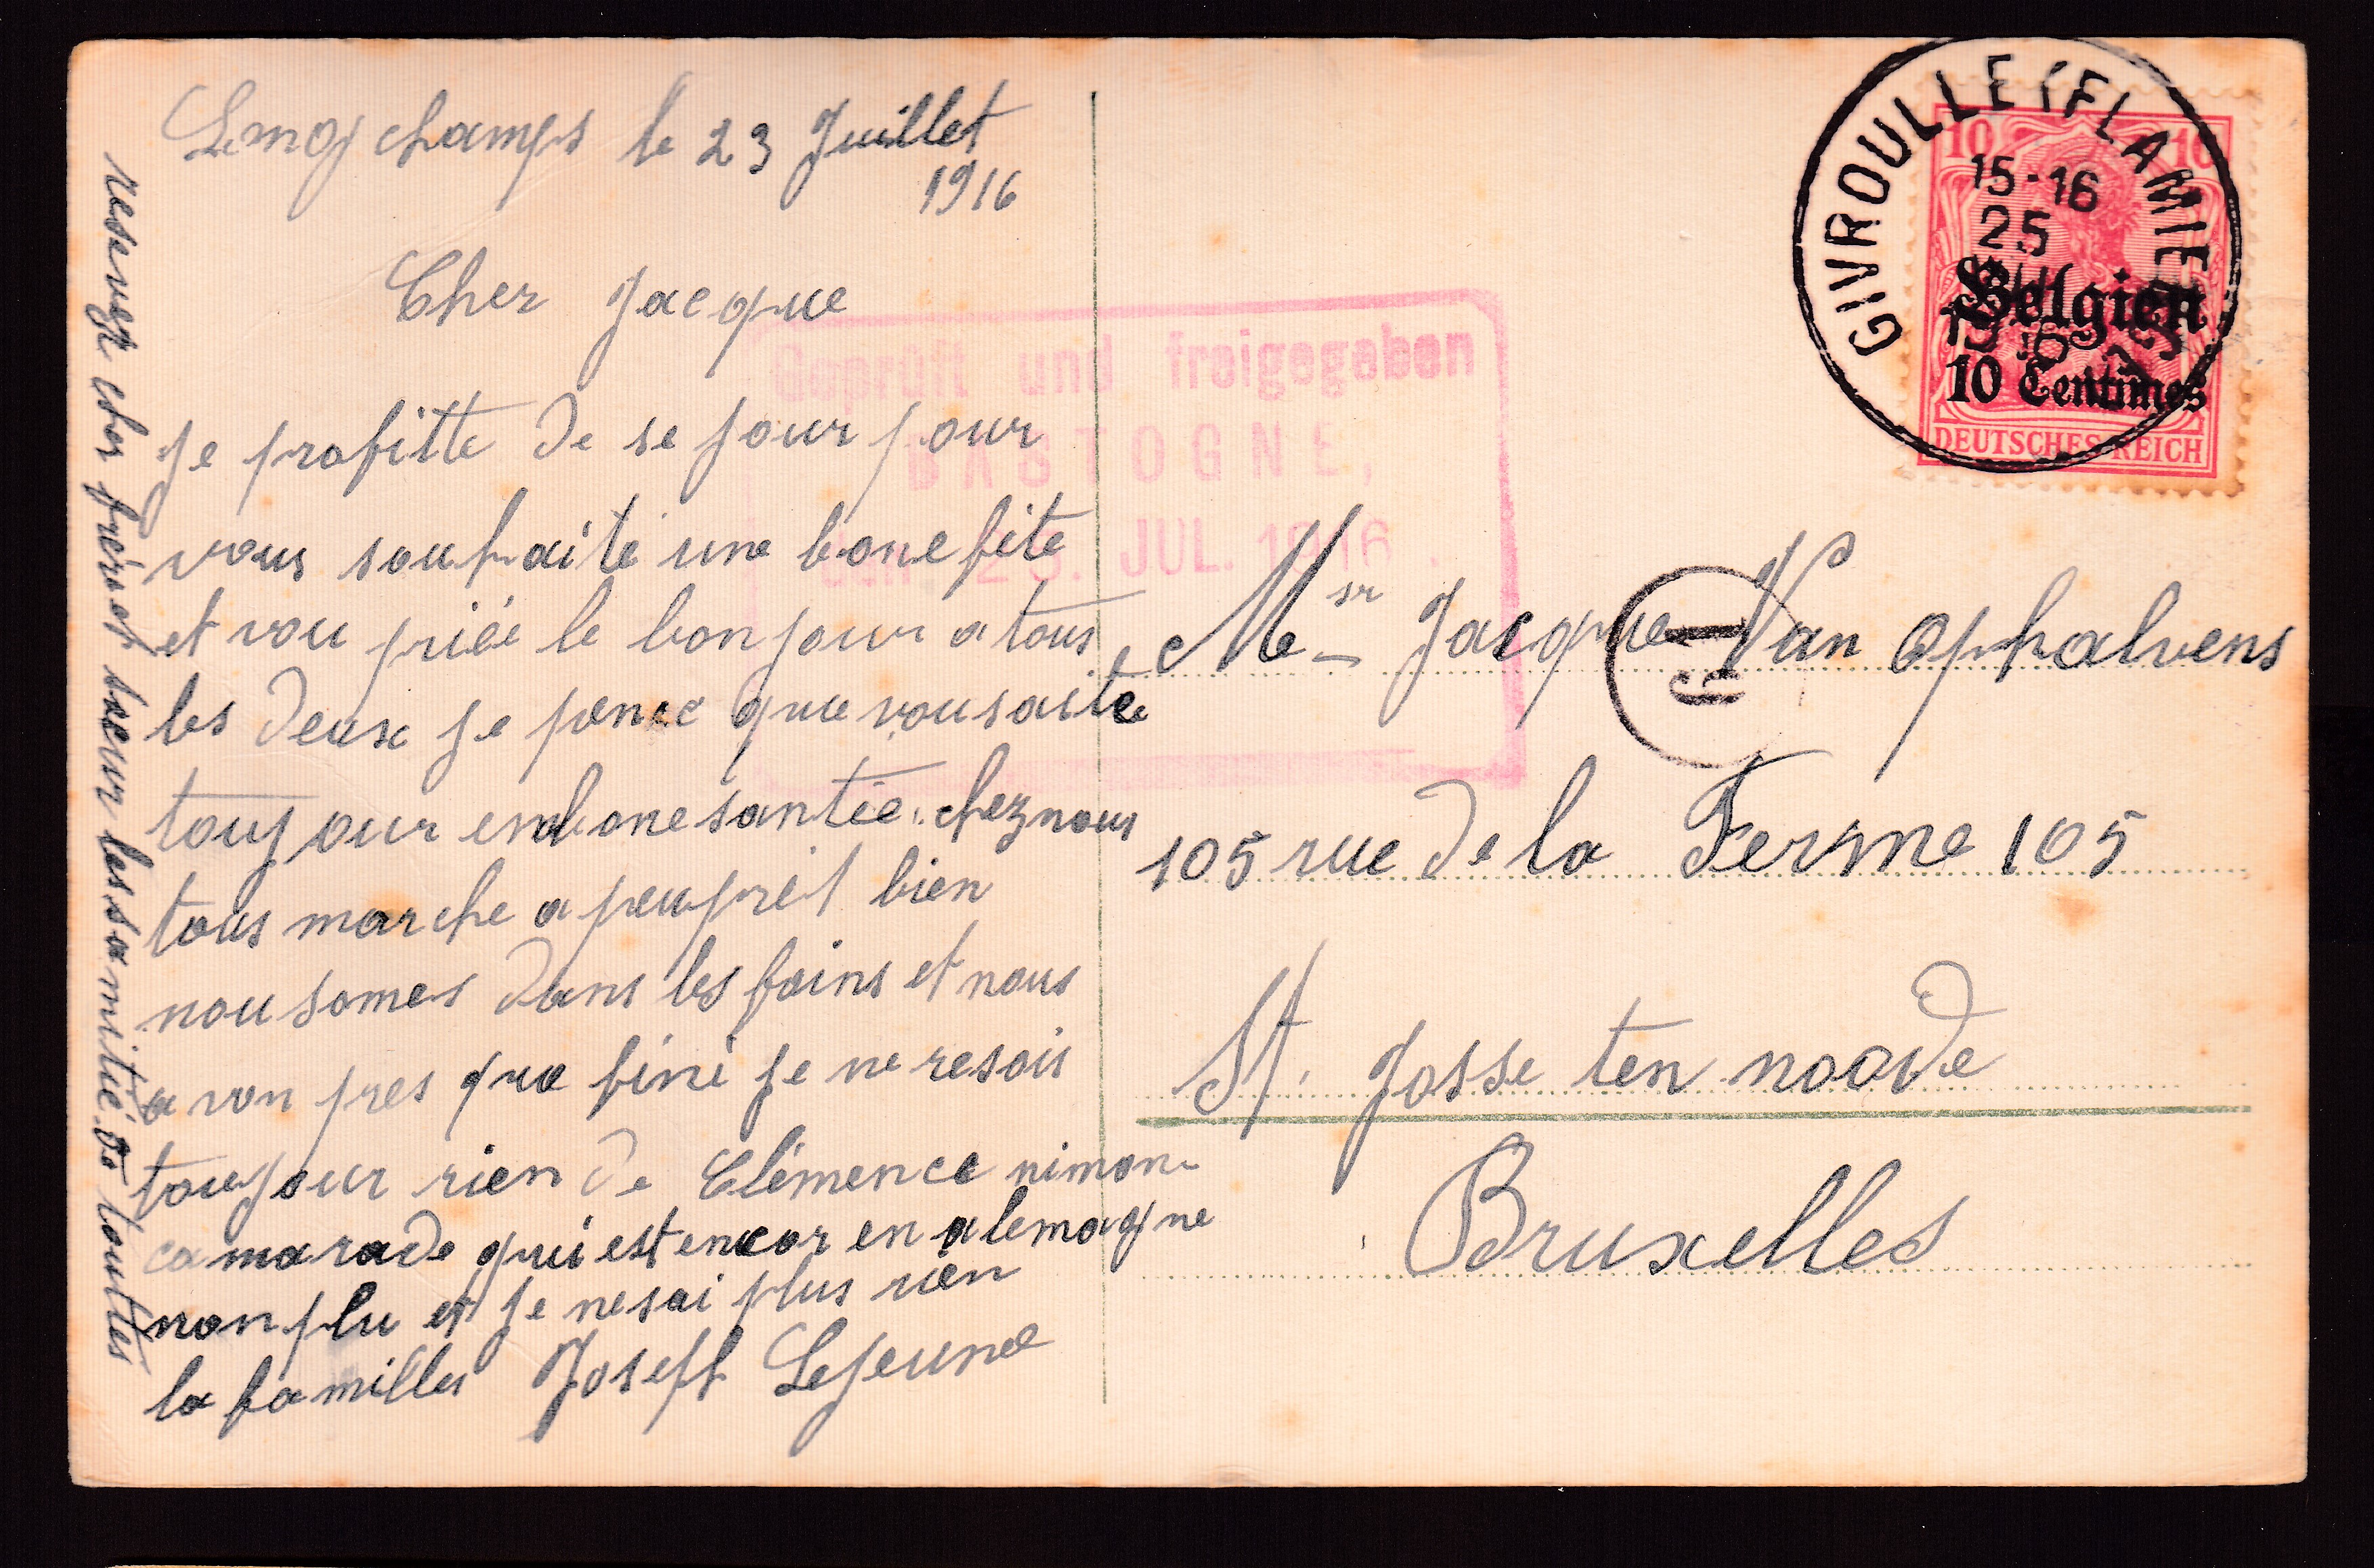 Lonojchamps le 23 Juillet
1916
Cher Jacque
je profitte de se jour pour
vous souhaite une bone fete
et vou priée le bonjour a tous
les deux je pence que vous aite
toujour en bone santée. chez nous
tous marche a peupret bien
nou somes dans les foins et nous
avon pres que fini je ne resois
toujour rien de Clémence ni mon
camarade qui est encor en alemagne
non plu et je ne sai plus rien
la familles Joseph Lejeune
resevez cher frér et soeur les s amitié de toutes
Geprüft und freigegeben
BASTOGNE,
JUL. 1916.
GIVROULLE (FLAMIE
15-16
25
10 10
Belgien
10 Centimes
DEUTSCHES REICH
Msr Jacque Van Ophalvens
105 rue de la Ferme 105
St. Josse ten noode
Bruxelles